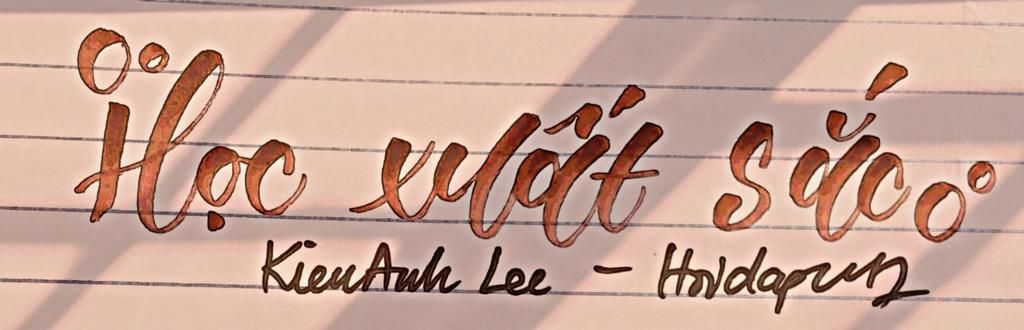 Học xuất sắc
KienAnh Lee - Hoidap247